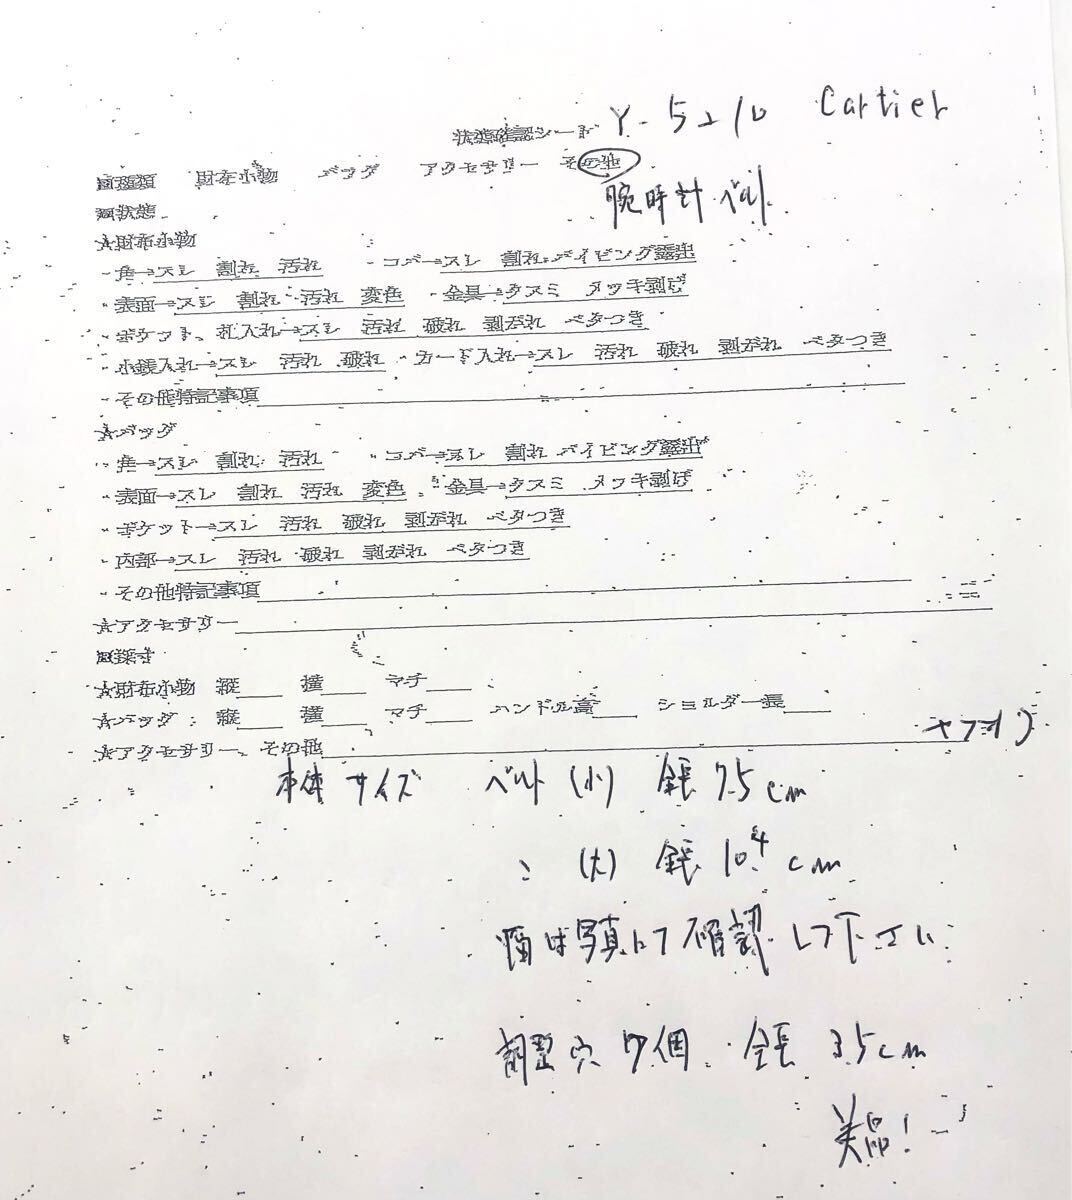 状態確認シート Y-5210 Cartier
■種類 財布小物 バッグ アクセサリー その他
腕時計ベルト
■状態
☆財布小物
・角→スレ 割れ 汚れ ・コバ→スレ 割れ パイピング露出
・表面→スレ 割れ 汚れ 変色 ・金具→クスミ メッキ剥げ
・ポケット、札入れ→スレ 汚れ 破れ 剥がれ ベタつき
・小銭入れ→スレ 汚れ 破れ ・カード入れ→スレ 汚れ 破れ 剥がれ ベタつき
・その他特記事項
☆バッグ
・角→スレ 割れ 汚れ ・コバ→スレ 割れ パイピング露出
・表面→スレ 割れ 汚れ 変色 ・金具→クスミ メッキ剥げ
・ポケット→スレ 汚れ 破れ 剥がれ ベタつき
・内部→スレ 汚れ 破れ 剥がれ ベタつき
・その他特記事項
☆アクセサリー
■採寸
☆財布小物 縦 横 マチ
☆バッグ：縦 横 マチ ハンドル高 ショルダー長
☆アクセサリー、その他
本体サイズ ベルト(小) 全長 7.5cm
〃 (大) 全長 10.4cm
幅は写真にて確認して下さい
調整穴 7個 全長 3.5cm
美品!